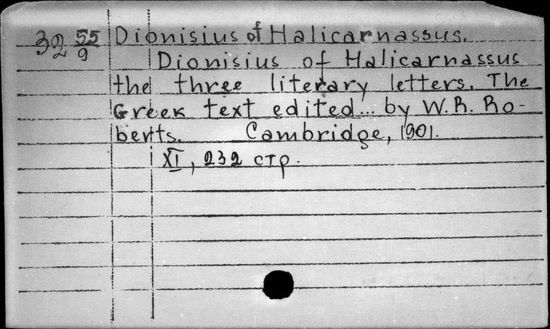 32 55/9 Dionisius of Halicarnassus.
Dionisius of Halicarnassus
the three literary letters. The
Greek text edited by W.R. Ro-
berts. Cambridge, 1901.
XI, 232 стр.